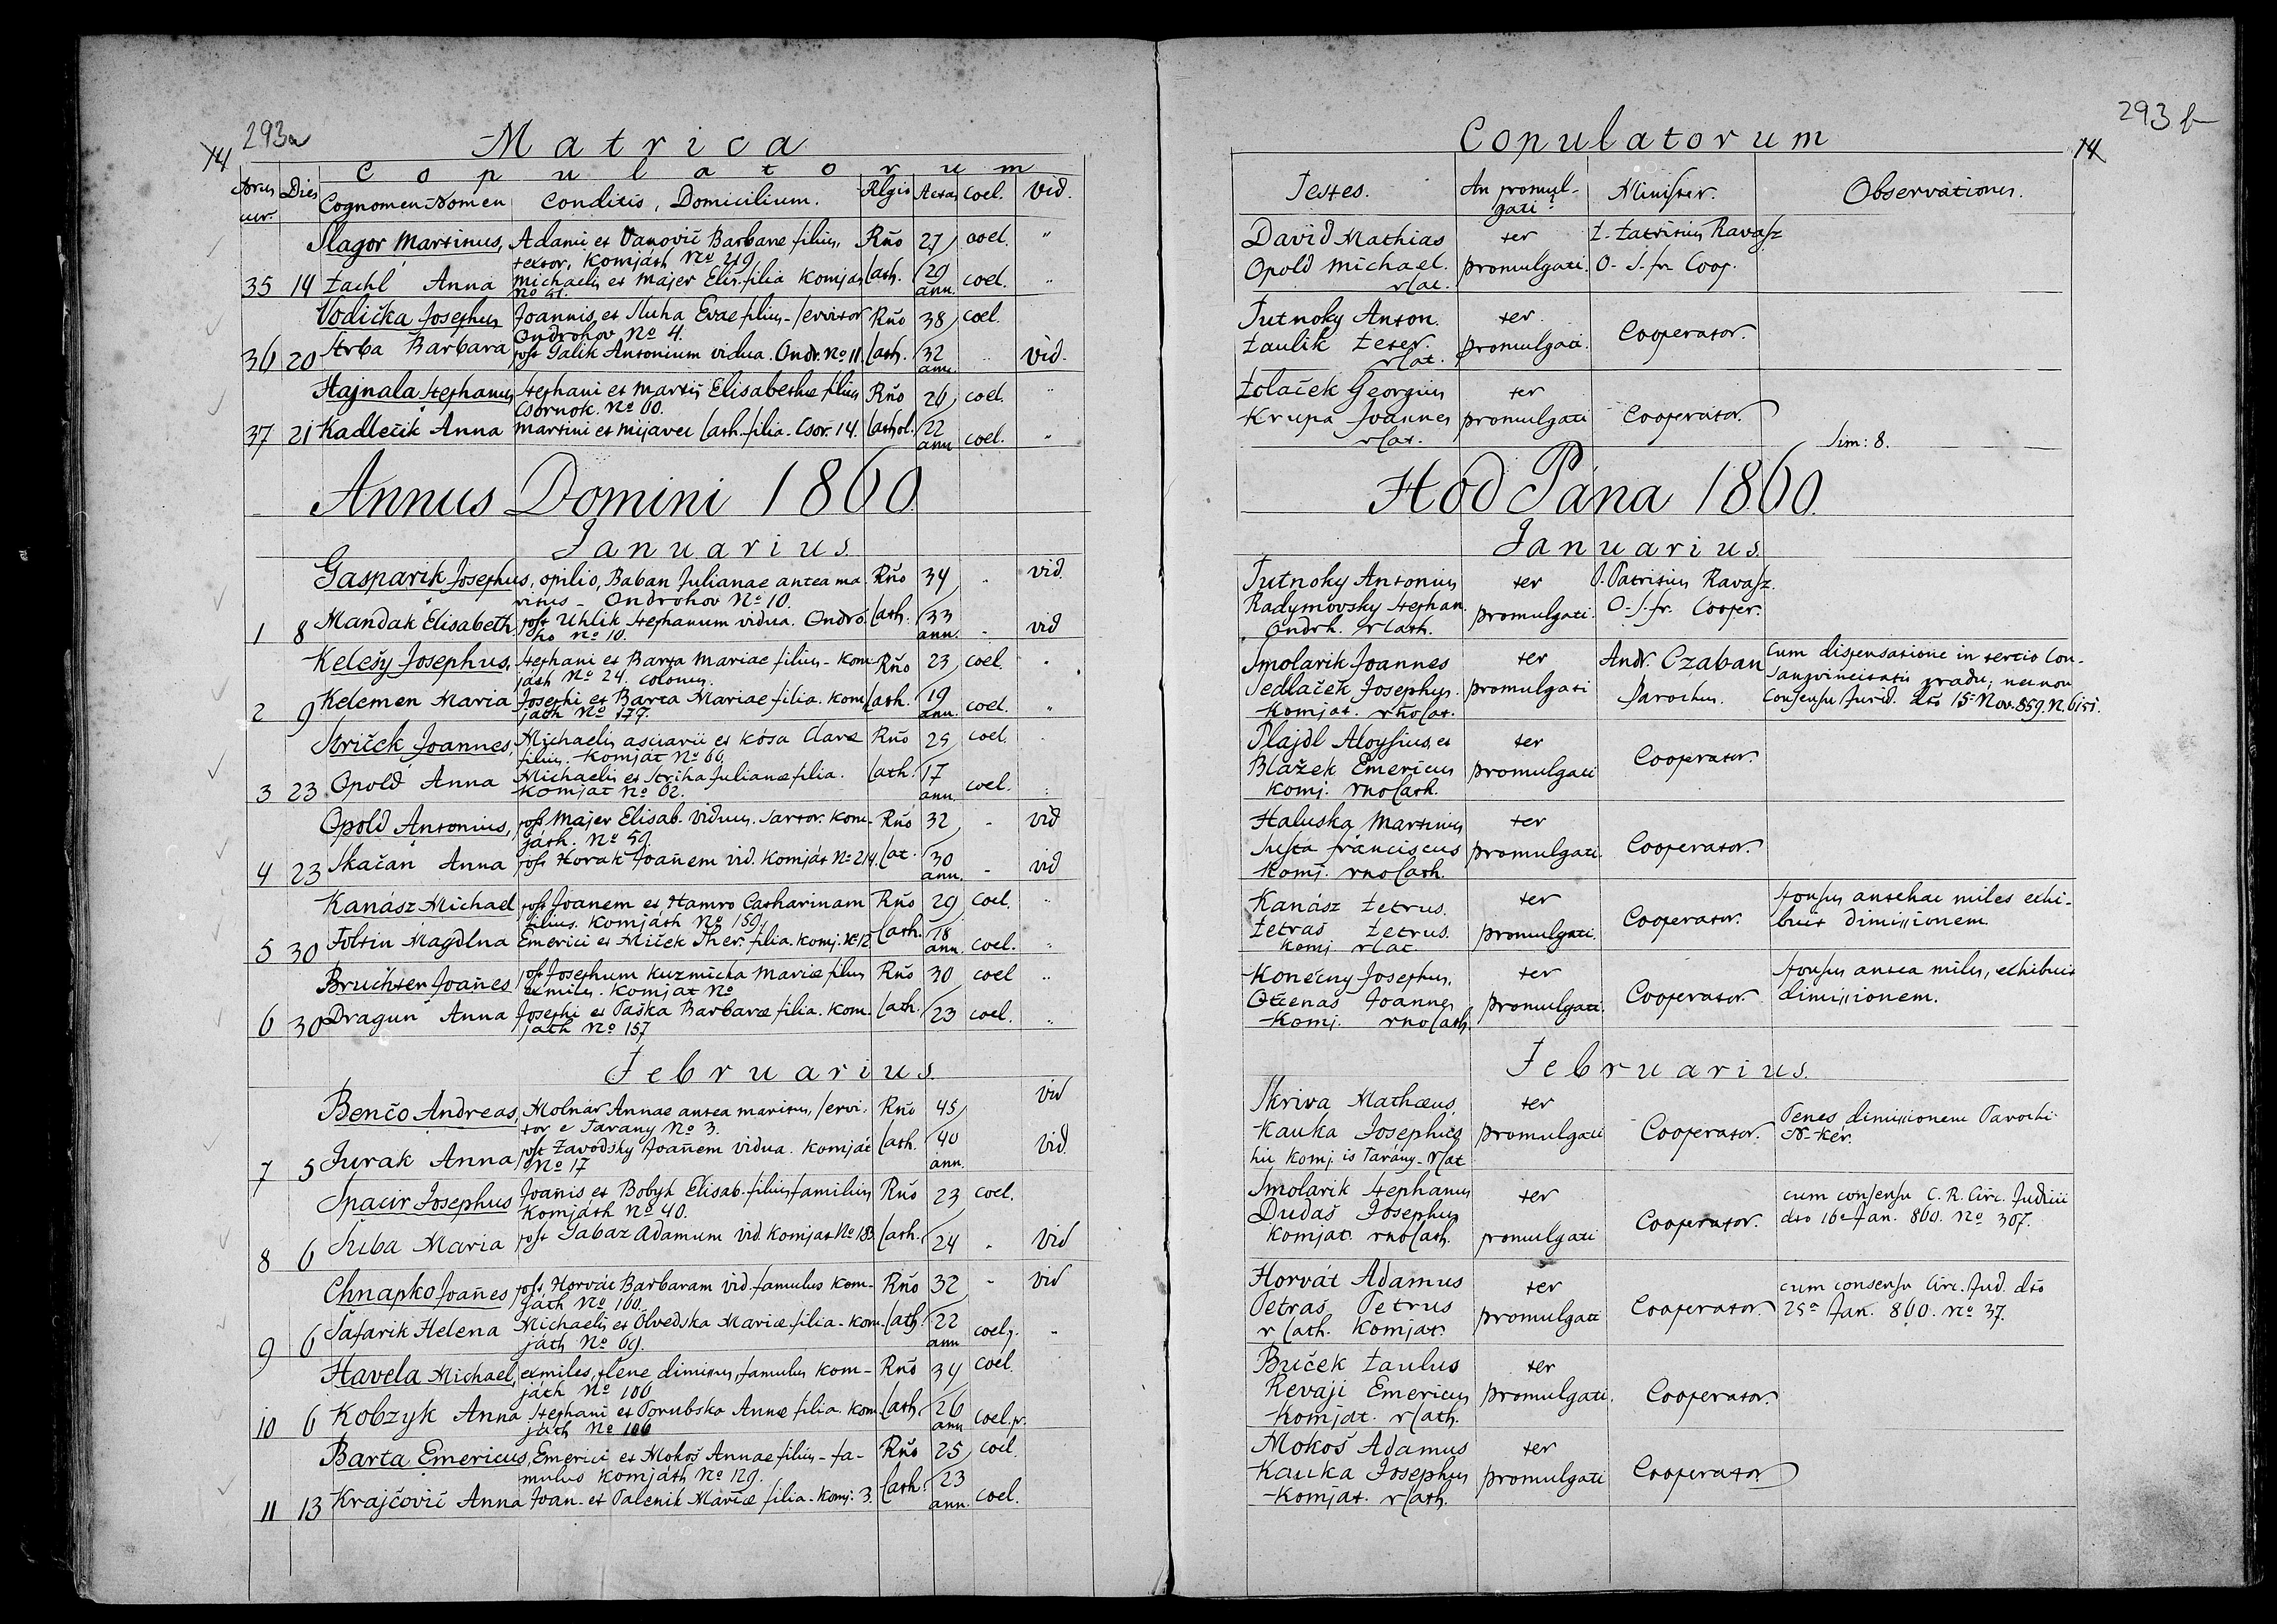 293a
Matrica
14
Copulatorum
Nrus cur. Dies Cognomen-Nomen Conditio, Domicilium. Rlgio Aetas Coel. Vid.
Slagor Martinus, Adami et Vanovič Barbarae filius, Rño 27 coel. "
textor, Komjáth. No 219,
35 14 Anna Michaelis et Majer Elis. filia Komját Cath. 29 ann. coel. "
Vodička Josephus Joannis et Suha Evae filius - servitor Rño 38 coel.
Ondrohov No 4.
36 20 Strba Barbara post Galik Antonium vidua. Ondr. No 11. Cath. 32 ann. " vid.
Hajnala Stephanus Stephani et Martiš Elisabethae filius Rño 26 coel. "
Csornok. No 60.
37 21 Kadlečik Anna Martini et Mijavec Cath. filia. Csor. 14. Cathol. 22 ann coel. "
Annus Domini 1860
Januarius.
Gasparik Josephus, opilio, Baban Julianae antea ma- Rño 34 - vid.
ritus - Ondrohov No 10.
1 8 Mandak Elisabeth. post Uhlik Stephanum vidua. Ondro- Cath. 33 ann. - vid
ho No 10.
Kelešy Josephus, Stephani et Barta Mariae filius - Kom- Rño 23 coel. "
játh No 24. colonus.
2 9 Kelemen Maria Josephi et Barta Mariae filia. Kom- Cath. 19 ann. coel. "
játh No 177.
Striček Joannes, Michaelis asciarii et Kósa Clarae Rño 25 coel. "
filius. Komját No 66.
3 23 Opold Anna Michaelis et Striha Julianae filia. Cath. 17 ann. coel. "
Komjat No 62.
Opold Antonius, post Majer Elisab. viduus. sartor. Kom- Rño 32 - vid
játh. No 59.
4 23 Skačan Anna post Horak Joañem vid. Komját No 214. Cat. 30 ann. - vid
Kanász Michael post Joanem et Hamro Catharinam Rño 29 coel. "
filius. Komjáth No 159,
5 30 Foltin Magdlna Emerici et Miček Ther. filia. Komj. No 12 Cath. 18 ann. coel. "
Bruchter Joañes post Josephum Kuzmicka Mariae filius Rño 30 coel "
exmiles. Komjat No
6 30 Dragun Anna Josephi et Paška Barbarae filia. Kom- Cath. 23 coel. "
játh No 157
Februarius.
Benčo Andreas, Molnár Annae antea maritus, servi- Rño 45 vid
tor e Tarany No 3.
7 5 Jurak Anna post Zavodsky Joañem vidua. Komját Cath. 40 ann. vid.
No 17
Spacir Josephus Joañis et Bobyk Elisab. filius, famulus Rño 23 coel.
Komjáth No 40.
8 6 Suba Maria post Gabaz Adamum vid. Komjat No 183 Cath. 24 - vid
Chnapko Joañes post Horvát Barbaram vid. famulus Kom- Rño 32 - vid
játh No 160.
9 6 Šafarik Helena Michaelis et Olvedska Mariae filia - Kom- Cath. 22 ann coel. "
játh No 69.
Havela Michael, exmiles, plene dimissus, famulus Kom- Rño 34 coel.
játh No 106
10 6 Kobzyk Anna Stephani et Porubska Annae filia. Kom- Cath. 26 ann coel.
játh No 106
Barta Emericus, Emerici et Mokoš Annae filius - fa- Rño 25 coel
mulus Komjáth No 129.
11 13 Krajčovič Anna Joan. et Palenik Mariae filia - Komj. 3. Cath. 23 ann. coel.
293 b
Copulatorum
14
Testes. An promul- gati? Minister. Observationes.
David Mathias ter P. Patritius Ravasz
Opold Michael. promulgati. O. S. fr. Coop.
rCat.
Tutnoky Anton. ter Cooperator.
Paulik Peter. promulgati.
rCat.
Polaček Georgius ter Cooperator.
Krupa Joannes promulgati
rCat. Sim: 8.
Hod Pána 1860.
Januarius.
Tutnoky Antonius ter P. Patritius Ravasz.
Radymovsky Stephan. promulgati. O. S. fr. Cooper.
Ondrh. rCath.
Smolarik Joannes ter Andr. Czaban Cum dispensatione in tertio Con-
Sedlaček Josephus. promulgati Parochus. sangvineitatis gradu; nec non
Komjat. rñoCat. Consensu Jurid. dto 15 Nov. 859. N. 6151.
Plajdl Aloysius, et ter Cooperator.
Blažek Emericus promulgati
Komj. rnoCath.
Haluska Martinus ter Cooperator.
Susta franciscus promulgati.
Komj. rnoCath.
Kanász Petrus. ter Cooperator. Sponsus antehac miles exhi-
Petraš Petrus. promulgati. buit dimissionem.
Komj. rCat.
Konečny Josephus. ter Cooperator. Sponsus antea miles, exhibuit
Otčenaš Joannes promulgati. dimissionem.
Komj. rnoCath
Februarius.
Skriva Mathaeus, ter Cooperator. Penes dimissionem Parochi
Kauka Josephus promulgati N-Kér.
hic Komj. is Tarány - rCat
Smolarik Stephanus ter Cooperator. cum consensu C. R. Circ. Judicii
Dudaš Josephus promulgati dto 16a Jan. 860. No 307.
Komjat. rnoCath.
Horvát Adamus ter Cooperator. cum consensu Circ. Jud. dto
Petraš Petrus promulgati 25a Jan. 860. No 37.
rCath. Komjat.
Buček Paulus ter Cooperator.
Revaji Emericus promulgati.
Komjat. rCath.
Mokoš Adamus ter Cooperator
Kauka Josephus promulgati
Komjat. rCath.